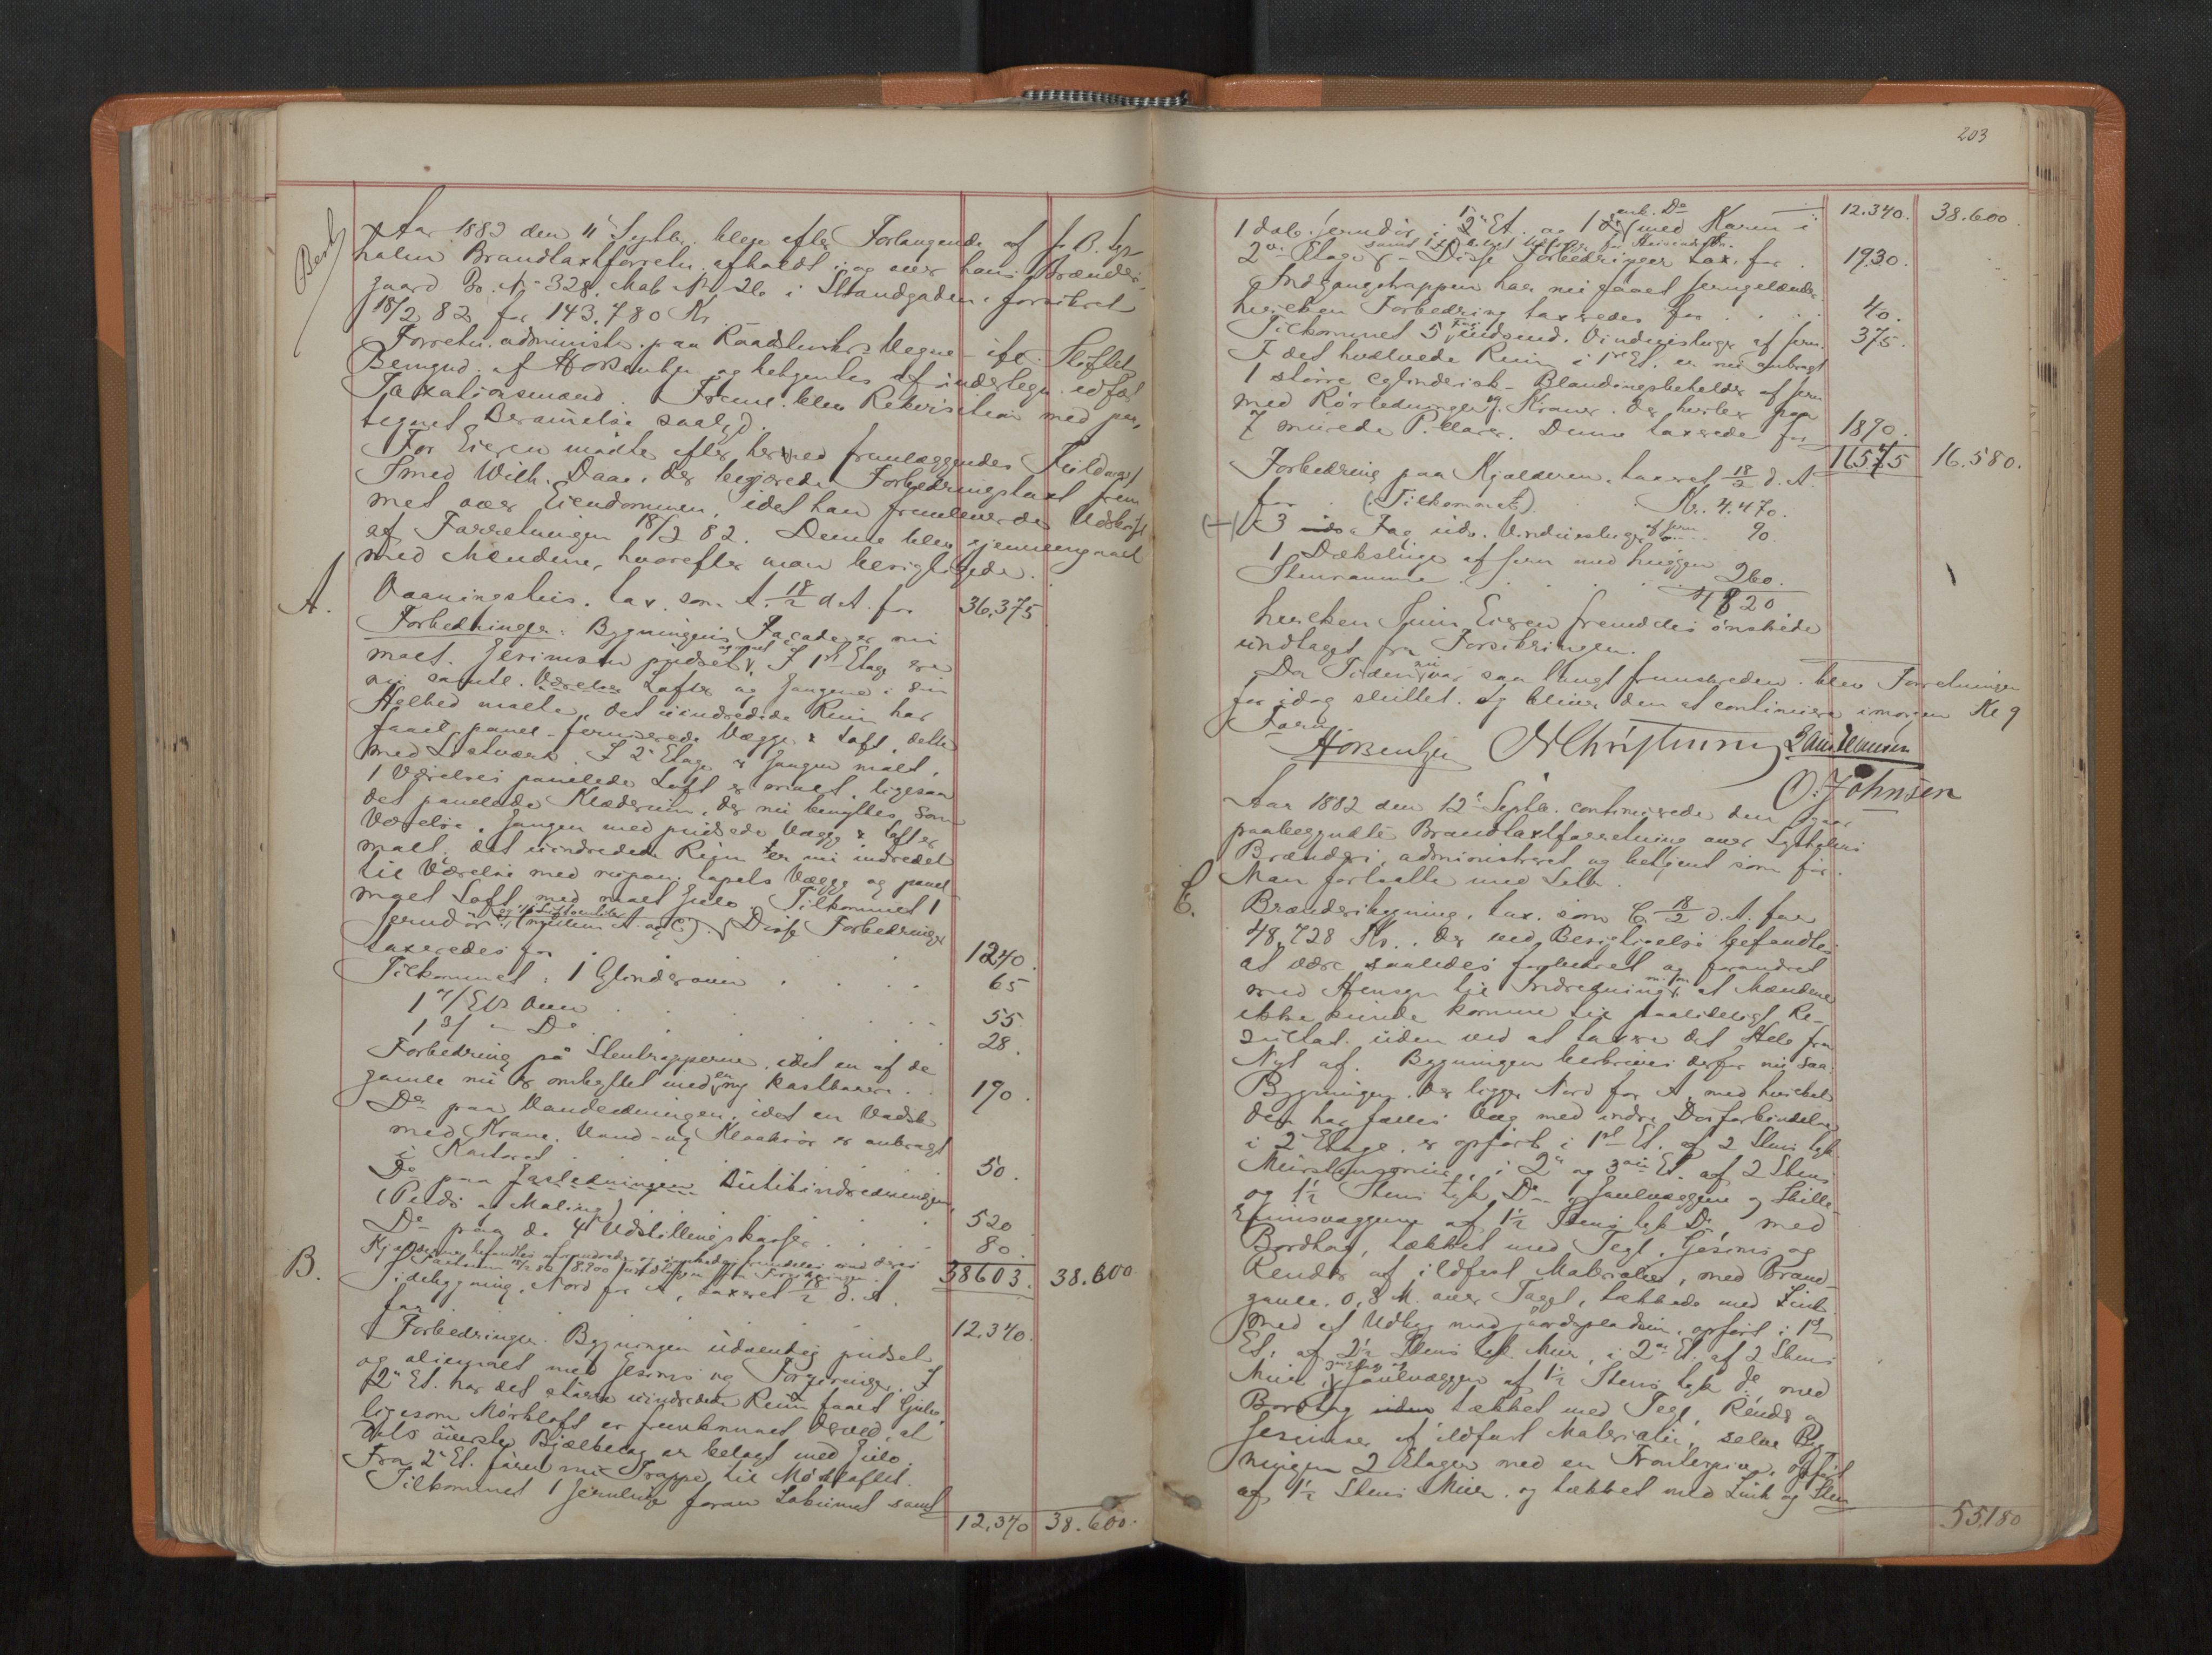 203
Best
Aar 1882 den 11' Septbr. blev efter Forlangende af J. B. Lys-
holm Brandtaxtforretn. afholdt i og over hans Brænderi-
gaard Bo. No 328, Mab No 26 i Strandgaden, forsikret
18/2 82 for 143.780 Kr.
Forretn. administr. paa Raadstuerets Vegne ifl. Stiftets
Bemynd. af Horsenbyr og betjentes af undertegn. edfæst
Taxationsmænd. Freml. blev Rekvisition med paa-
tegnet Berammelse saal.
For Eieren mødte efter herved fremlæggendes Fuldmagt
Smed Wilh. Daae, der begjærede Forbedringstaxt frem
met over Eiendommen, idet han fremleverede Udskrift
af Forretningen 18/2 82. Denne blev gjennemgaaet
med Mændene, hvorefter man besigtigede.
A. Vaaningshus, tax. som A. 18/2 d. A. for 36.375
Forbedringer: Bygningens Facade er nu
malt. Gesimsen pudset og malt. I 1ste Etage ere
nu samtl. Værelser Lofter og Gangene i sin
Helhed malte, det uindredede Rum har
faaet panel-ferniserede Vægge & Loft, dette
med Listværk. I 2' Etage er Gangen malt,
1 Værelses panelede Loft er malt, ligesaa
det panelede Klæderum, der nu benyttes som
Værelse. Gangen med pudsede Vægg & Loft er
malt, det uindredede Rum er nu indredet
til Værelse med rupan. tapets. Vægge og panel
malt Loft med malt Gulv. Tilkommet 1
Jerndør (mellem A. og C). Disse Forbedringer
taxeredes for 1240.
Tilkommet: 1 Cylinderovn 65
1 4/Etg Ovn 55.
1 3/ - Do 28.
Forbedring på Stentrapperne, idet en af de
gamle nu er ombyttet med en ny Kastbaar 190.
Do paa Vandledningen, idet en Vadsk
med Krane, Vand- og Kloakrør er anbragt
i Kontoret 50.
Do paa Gasledningen Butikindredningen
(Puds og Maling) 520
Do paa de 4 Udstillingskasser 80.
38603. 38.600
B. Sidebygning, Nord for A, taxeret 18/2 d. A.
for 12.340.
Forbedringer. Bygningen udvendig pudset
og oliemalt med Gesims og Forziringer. I
2' Et. har det større uindredede Rum faaet Gulv,
ligesom Mørkloft er fremkommet derved, at
det øverste Bjælkelag er belagt med Gulv.
Fra 2' Et. fører nu Trappe til Mørkloftet.
Tilkommet 1 Jernluge foran Lokumet samt
12.340 38.600.
12.340. 38.600.
1 dob. Jerndør i 2' Et. og 1 enk. Do med Karm i
2den Etage. Disse Forbedringer tax. for 1930.
Indgangstrappen har nu faaet Jerngelænder
hvilken Forbedring taxeredes for 40.
Tilkommet 5 Fag indvend. Vindusluger af Jern 375.
I det hvælvede Rum i 1ste Et. er nu anbragt
1 større cylindrisk Blandingsbeholder af Jern
med Rørledninger og Kraner, der hviler paa
7 murede Pillarer. Denne taxeredes for 1890.
16575 16.580.
Forbedring paa Kjælderen, taxeret 18/2 d. A.
for (Tilkommet) Kr. 4.470.
(÷) 3 Fag udv. Vindusluger af Jern 90.
1 Dækluge af Jern med huggen
Stenramme 260.
4820
hvilken Sum Eieren fremdeles ønskede
undtaget fra Forsikringen.
Da Tiden nu var saa langt fremskreden, blev Forretningen
for idag sluttet. og bliver den at continuere imorgen Kl 9
Form.
Horsenbyr NChristensen LAndHansen
O. Johnsen
Aar 1882 den 12' Septbr. continuerede den igaar
paabegyndte Brandtaxtforretning over Lysholms
Brænderi, administreret og betjent som før.
Man fortsatte med Litr.
C. Brænderibygning, tax. som C. 18/2 d. A. for
48.728 Kr., der ved Besigtigelse befandtes
at være saaledes forbedret og forandret
med Hensyn til Indredning, at Mændene
ikke kunde komme til paalideligt Re-
sultat uden ved at taxere det Hele fra
Nyt af. Bygningen beskrives derfor nu saa:
Bygningen, der ligger Nord for A, med hvilket
den har fælles Væg med indre Dørforbindelse
i 2' Etage, er opført i 1ste Et. af 2 Stens tyk
Murstensmur, i 2' og 3die Et. af 2 Stens
og 1½ Stens tyk Do. Gavlvæggene og Skille-
rumsvæggene af 1½ Stens tyk Do, med
Bordtag, tækket med Tegl. Gesims og
Render af ildfast Materialier, med Brand-
gavle. 0,8 M. over Taget, tækkede med Zink
med et Udbyg mod Gårdspladsen, opført i 1ste
Et. af 2½ Stens tyk Mur, i 2den Et. af 2 Stens
Mur i 3die Etage og Gavlvæggen af 1½ Stens tyk do, med
Bordtag tækket med Tegl, Render og
Gesimser af ildfast Materialier, selve Byg-
ningen 2 Etager med en Frontespice, opført
af 1½ Stens Mur, og tækket med Zink og Sten
55.180